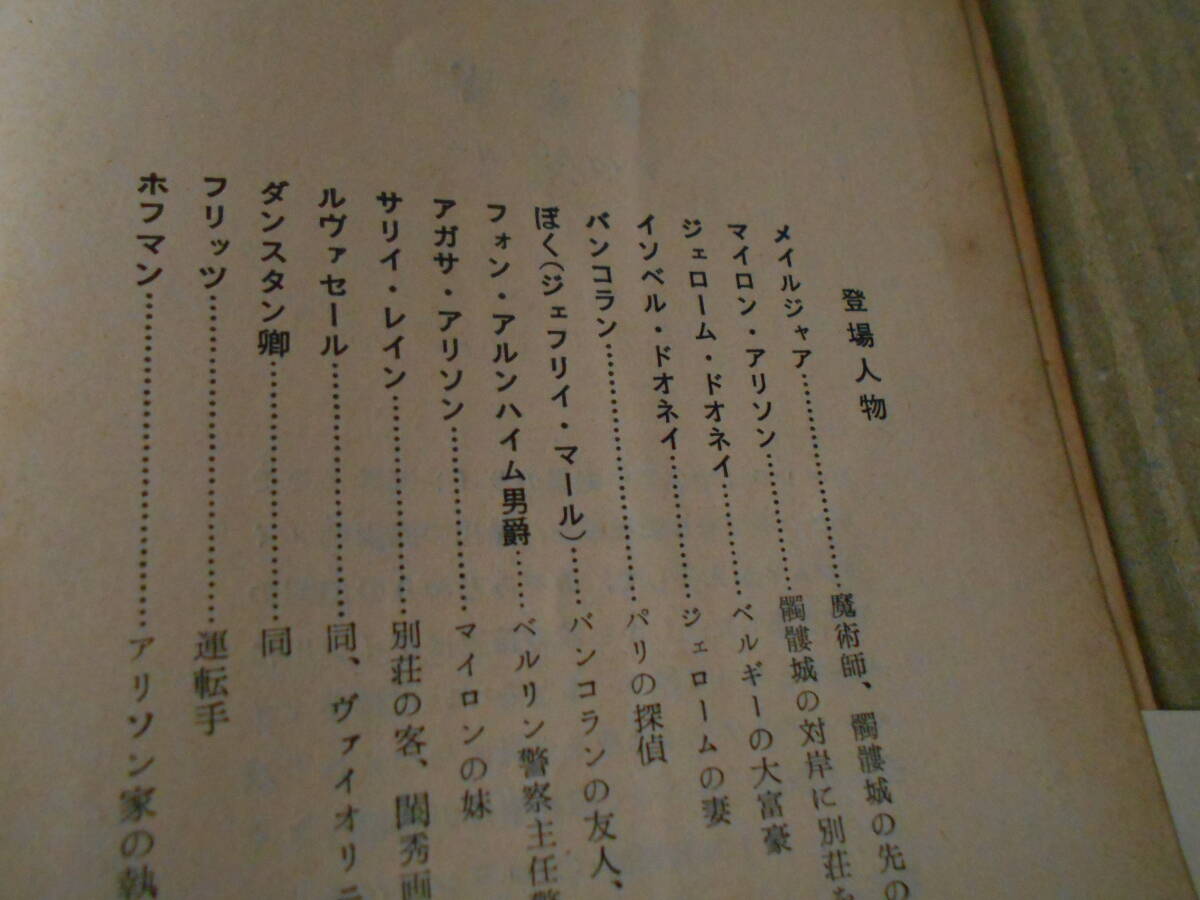 登場人物
メイルジャア……………………魔術師、髑髏城の先の
マイロン・アリソン……………髑髏城の対岸に別荘を
ジェローム・ドオネイ…………ベルギーの大富豪
イソベル・ドオネイ……………ジェロームの妻
バンコラン………………………パリの探偵
ぼく(ジェフリイ・マール)……バンコランの友人、
フォン・アルンハイム男爵……ベルリン警察主任警
アガサ・アリソン………………マイロンの妹
サリイ・レイン…………………別荘の客、閨秀画
ルヴァセール……………………同、ヴァイオリニ
ダンスタン卿……………………同
フリッツ…………………………運転手
ホフマン…………………………アリソン家の執